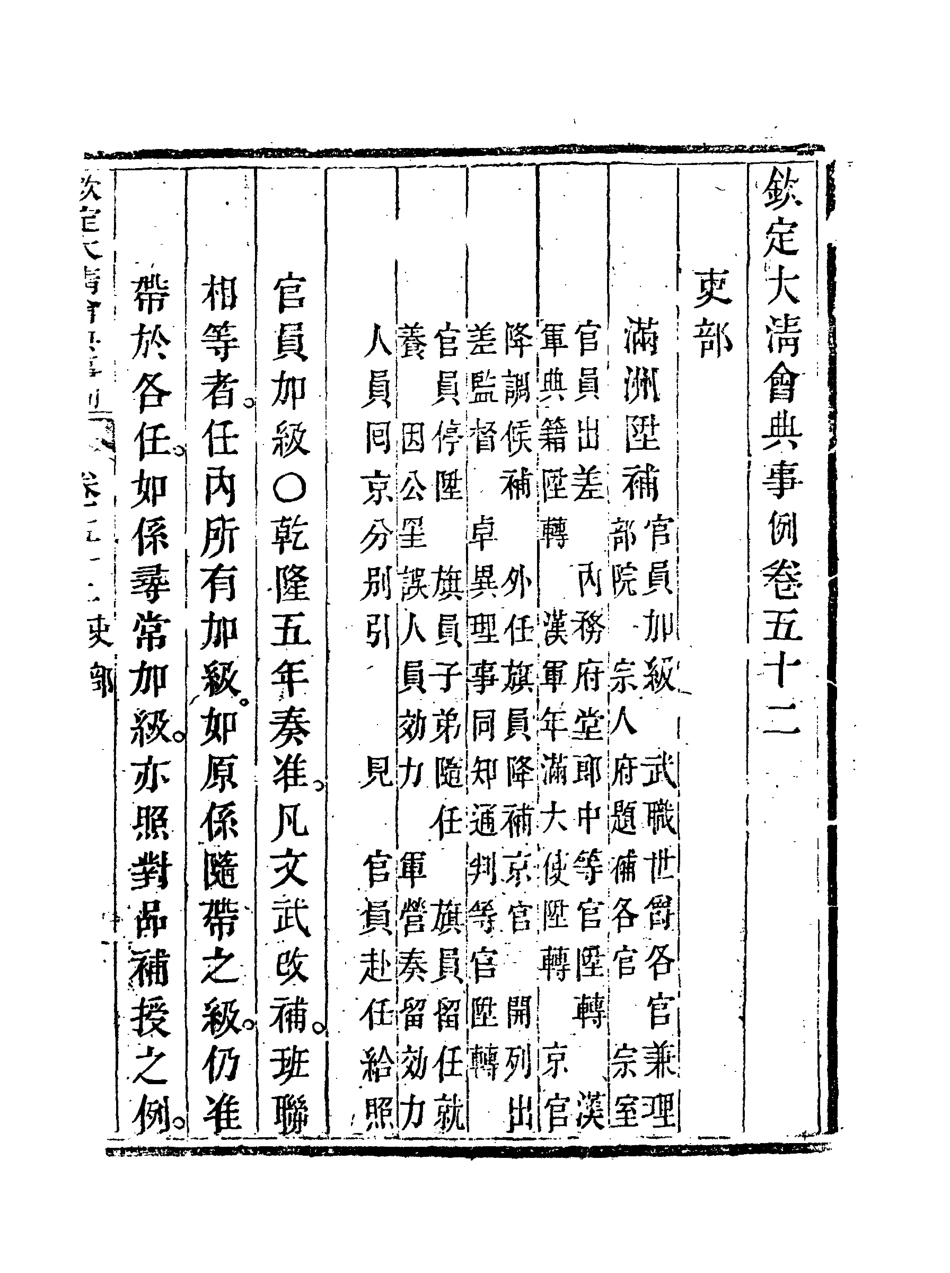 欽定大淸會典事例卷五十二
吏部
滿洲陞補
官員加級　武職世爵各官兼理
部院　宗人府題補各官　宗室
官員出差　內務府堂郎中等官陞轉　漢
軍典籍陞轉　漢軍年滿大使陞轉　京官
降調候補　外任旗員降補京官　開列出
差監督　卓異理事同知通判等官陞轉
官員停陞　旗員子弟隨任　旗員留任就
養　因公罣誤人員効力　軍營奏留効力
人員囘京分別引　見　官員赴任給照
官員加級〇乾隆五年奏准。凡文武改補。班聯
相等者。任內所有加級。如原係隨帶之級。仍准
帶於各任。如係尋常加級。亦照對品補授之例。
欽定大淸會典事例　卷五十二　吏部